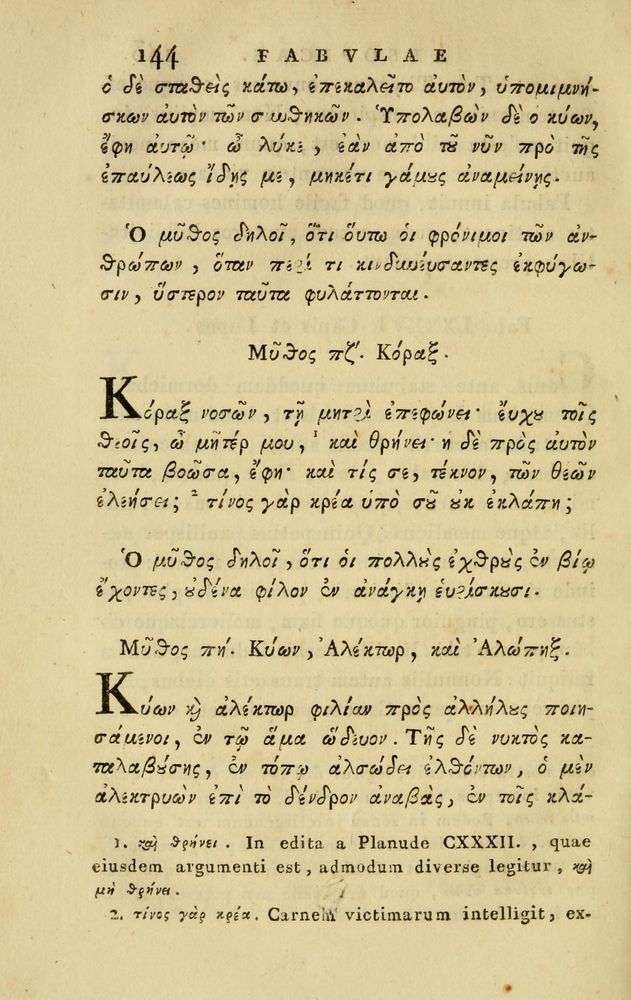 144 FABVLAE
ὁ δὲ σταθεὶς κάτω, ἐπεκαλεῖτο αὐτὸν, ὑπομιμνή-
σκων αὐτὸν τῶν συνθηκῶν. Ὑπολαβὼν δὲ ο κύων,
ἔφη αὐτῷ· ὦ λύκε, ἐὰν ἀπὸ τοῦ νῦν πρὸ τῆς
ἐπαύλεως ἴδῃς με, μηκέτι γάμους ἀναμείνῃς.
Ὁ μῦθος δηλοῖ, ὅτι οὕτω οἱ φρόνιμοι τῶν ἀν-
θρώπων, ὅταν περί τι κινδυνεύσαντες ἐκφύγω-
σιν, ὕστερον ταῦτα φυλάττονται.
Μῦθος πζʹ. Κόραξ.
Κόραξ νοσῶν, τῇ μητρὶ ἐπεφώνει· ἔυχου τοῖς
θεοῖς, ὦ μῆτέρ μου, 1 καὶ θρήνει· ἡ δὲ πρὸς αὐτὸν
ταῦτα βοῶσα, ἔφη· καὶ τίς σε, τέκνον, τῶν θεῶν
ἐλεήσει; 2 τίνος γὰρ κρέα ὑπὸ σοῦ οὐκ ἐκλάπη;
Ὁ μῦθος δηλοῖ, ὅτι ὁι πολλοὺς ἐχθροὺς ἐν βίῳ
ἔχοντες, οὐδένα φίλον ἐν ἀνάγκῃ ἑυρίσκουσι.
Μῦθος πήʹ. Κύων, Ἀλέκτωρ, καὶ Ἀλώπηξ.
Κύων καὶ ἀλέκτωρ φιλίαν πρὸς ἀλλήλους ποιη-
σάμενοι, ἐν τῷ ἅμα ὥδευον. Τῆς δὲ νυκτὸς κα-
ταλαβούσης, ἐν τόπῳ ἀλσώδει ἐλθόντων, ὁ μὲν
ἀλεκτρυὼν ἐπὶ τὸ δένδρον ἀναβὰς, ἐν τοῖς κλά-
1. καὶ θρήνει. In edita a Planude CXXXII., quae
eiusdem argumenti est, admodum diverse legitur, καὶ
μὴ θρήνει.
2. τίνος γὰρ κρέα. Carnem victimarum intelligit, ex-